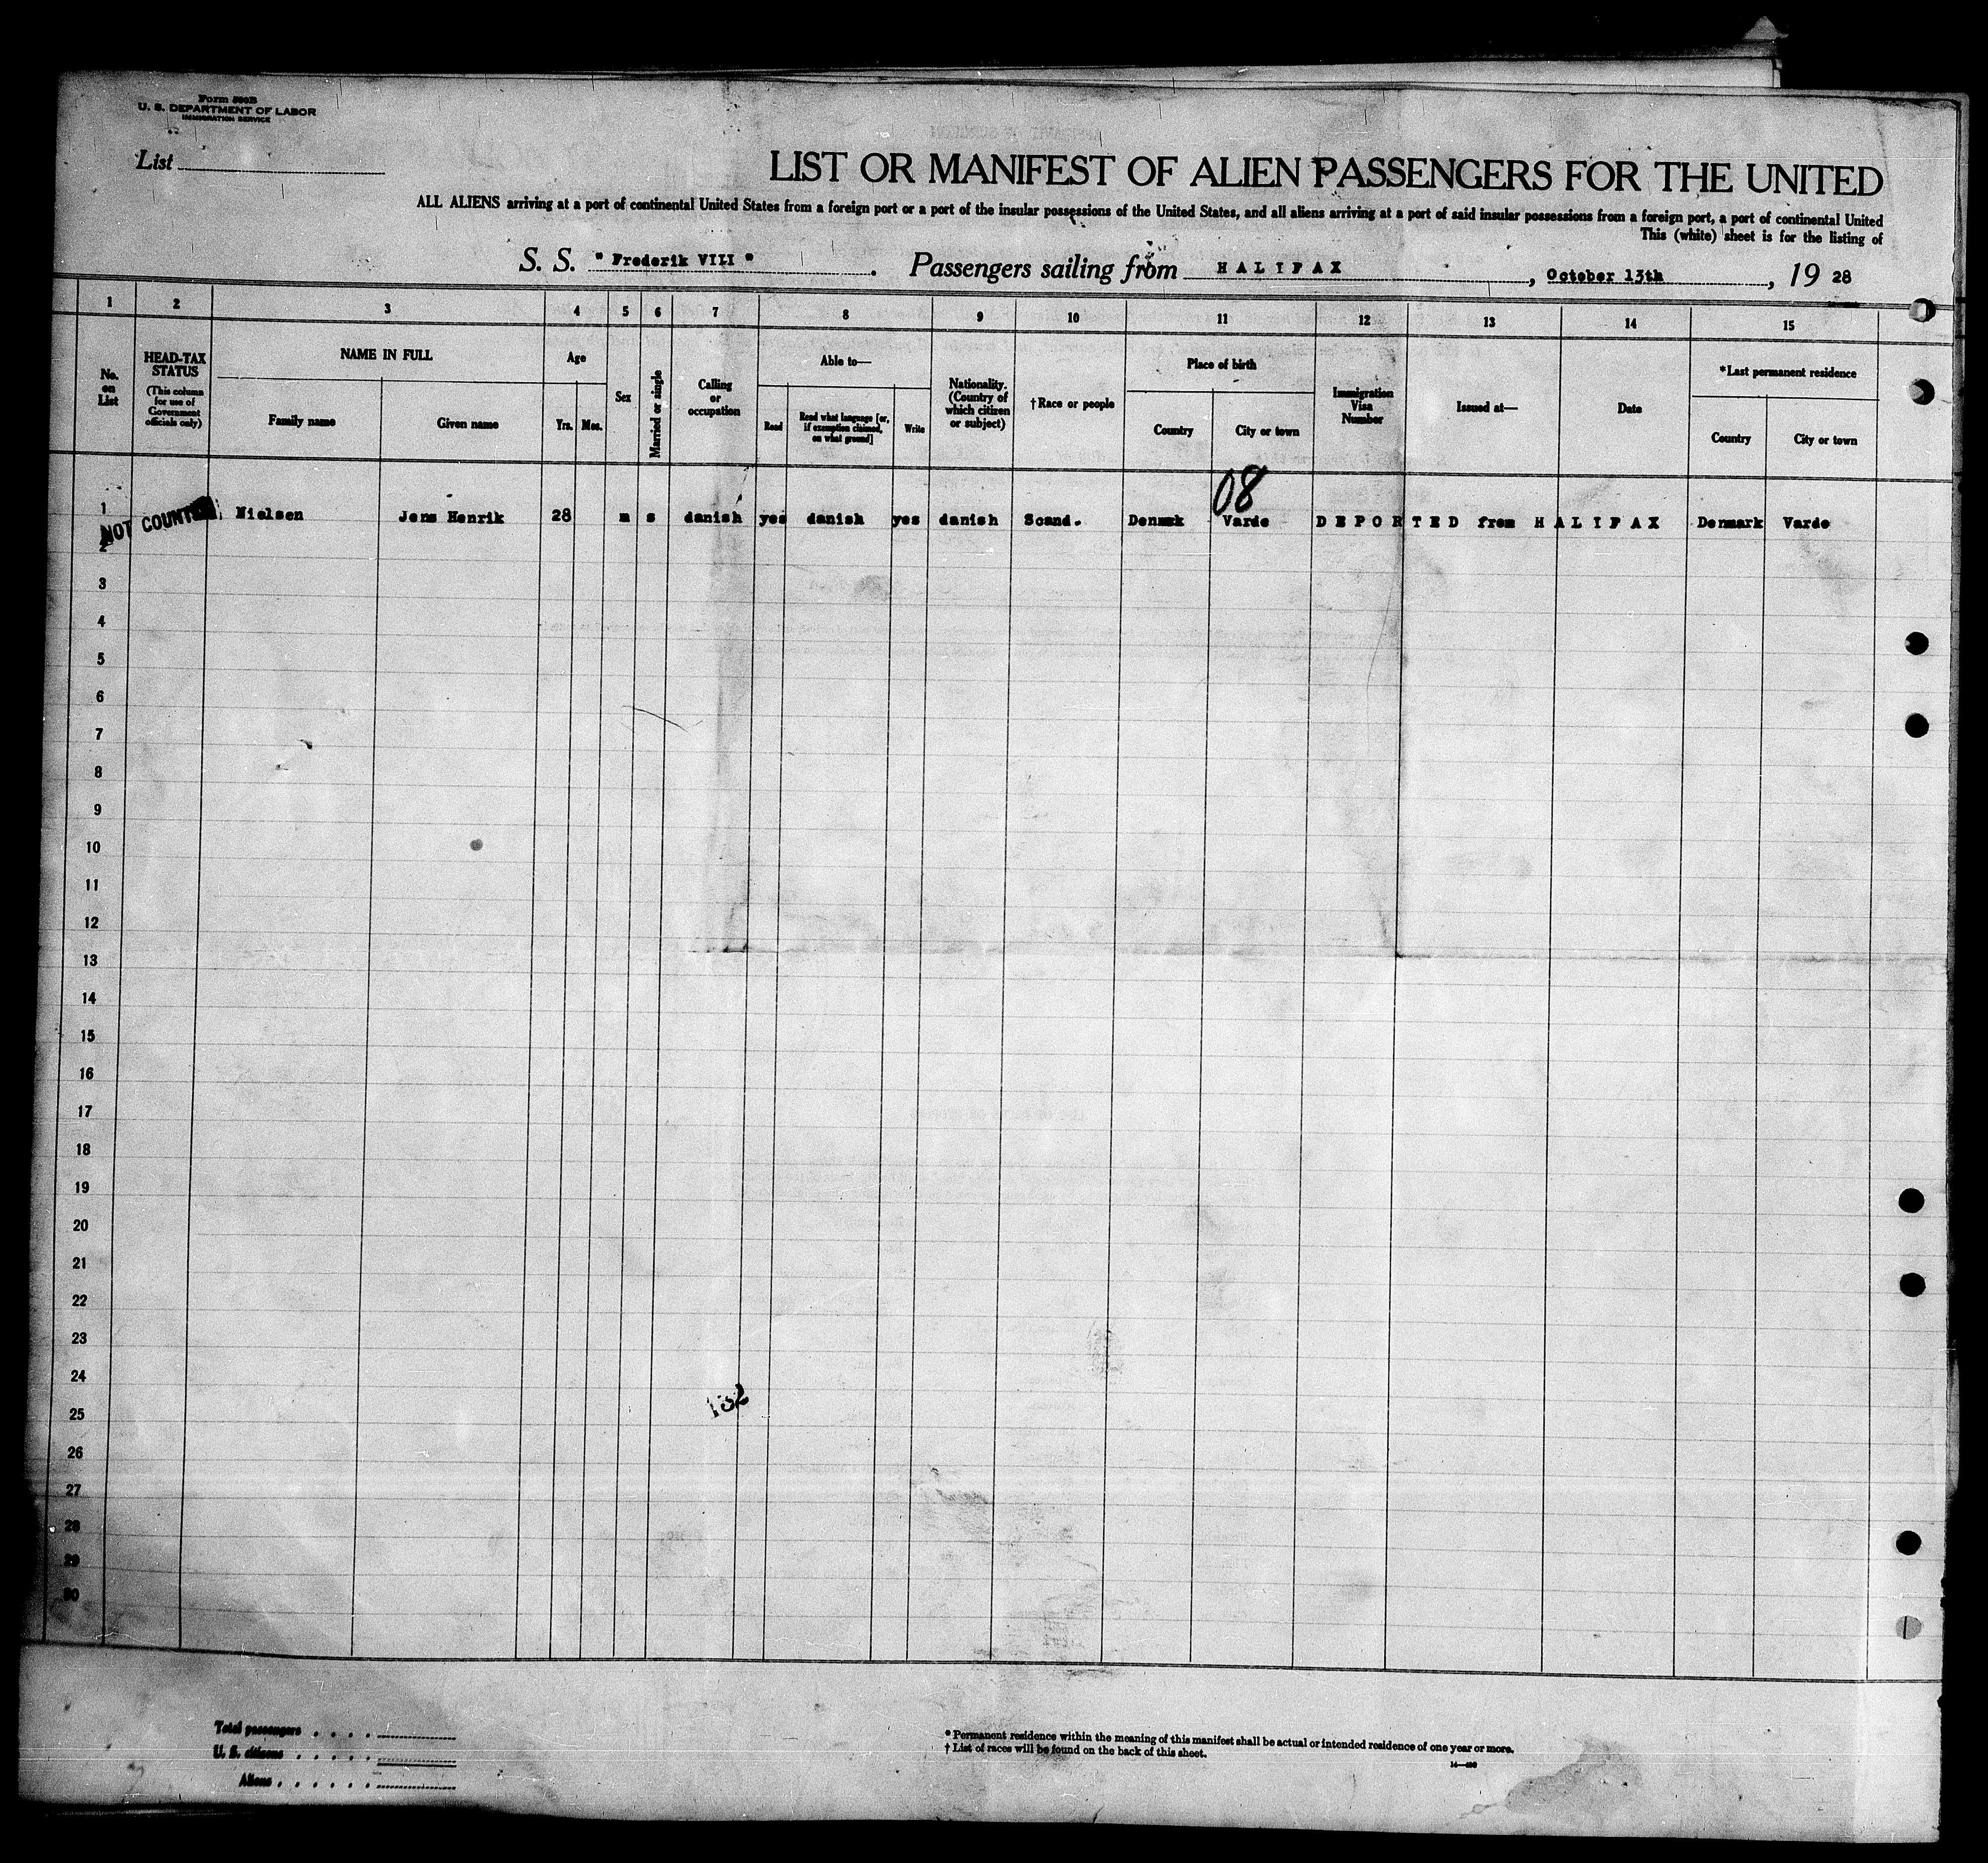 Form 500B
U. S. DEPARTMENT OF LABOR
IMMIGRATION SERVICE
List
LIST OR MANIFEST OF ALIEN PASSENGERS FOR THE UNITED
ALL ALIENS arriving at a port of continental United States from a foreign port or a port of the insular possessions of the United States, and all aliens arriving at a port of said insular possessions from a foreign port, a port of continental United
This (white) sheet is for the listing of
S. S. " Frederik VIII " . Passengers sailing from HALIFAX , October 13th , 19 28
1 2 3 4 5 6 7 8 9 10 11 12 13 14 15
No. on List
HEAD-TAX STATUS
(This column for use of Government officials only)
NAME IN FULL
Family name Given name
Age
Yrs. Mos.
Sex
Married or single
Calling or occupation
Able to—
Read
Read what language [or, if exemption claimed, on what ground]
Write
Nationality. (Country of which citizen or subject)
† Race or people
Place of birth
Country City or town
Immigration Visa Number
Issued at—
Date
*Last permanent residence
Country City or town
08
1 Nielsen Jens Henrik 28 m s danish yes danish yes danish Scand. Denmrk Varde DEPORTED from HALIFAX Denmark Varde
NOT COUNTED
2
3
4
5
6
7
8
9
10
11
12
13
14
15
16
17
18
19
20
21
22
23
24
132
25
26
27
28
29
30
Total passengers . . . .
U. S. citizens . . . . .
Aliens . . . . . .
* Permanent residence within the meaning of this manifest shall be actual or intended residence of one year or more.
† List of races will be found on the back of this sheet.